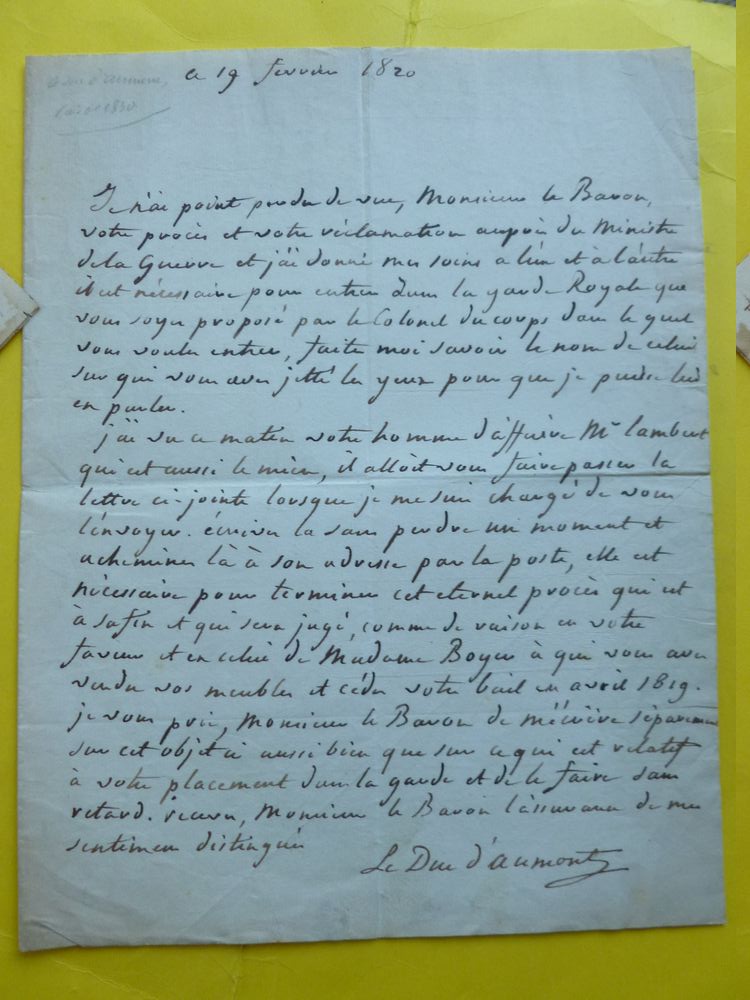 ce 19 fevrier 1820
Je n'ai point perdu de vue, Monsieur le Baron,
votre procès et votre réclamation auprès du Ministre
de la Guerre et j'ai donné mes soins a l'un et à l'autre
il est nécessaire pour entrer dans la garde Royale que
vous soyez proposé par le Colonel du corps dans le quel
vous voulez entrer, faite moi savoir le nom de celui
sur qui vous avez jetté les yeux pour que je puisse lui
en parler.
j'ai vu ce matin votre homme d'affaire Mr lambert
qui est aussi le mien, il alloit vous faire passer la
lettre ci-jointe lorsque je me suis chargé de vous
l'envoyer. écrivez la sans perdre un moment et
acheminez là à son adresse par la poste, elle est
nécessaire pour terminer cet eternel procès qui est
à sa fin et qui sera jugé, comme de raison en votre
faveur et en celui de Madame Boyer à qui vous avez
vendu vos meubles et cédez votre bail en avril 1819.
je vous prie, Monsieur le Baron de m'écrire séparement
sur cet objet ci aussi bien que sur ce qui est relatif
à votre placement dans la garde et de le faire sans
retard. recevez, Monsieur le Baron l'assurance de mes
sentimens distingués
Le Duc d'aumont